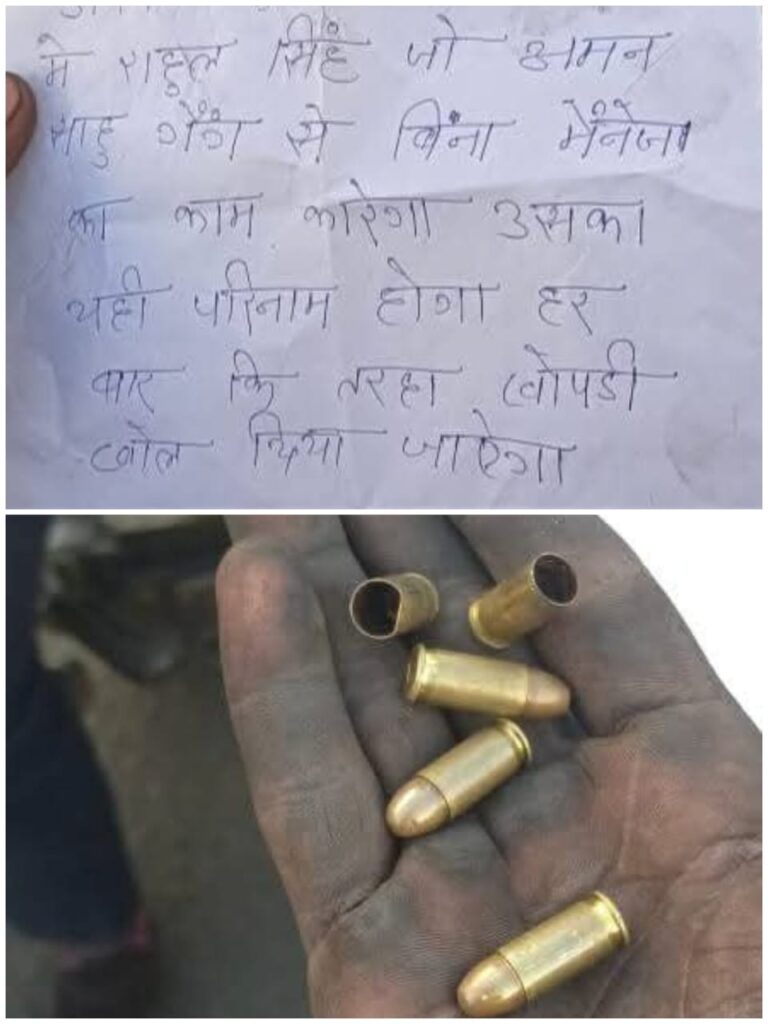 मे राहुल सिंह जो अमन
साहु गैंग से बिंना मेंनेजा
का काम कारेगा उसका
यही परिनाम होगा हर
बार कि तरहा खोपडी
खोल दिया जाऐगा